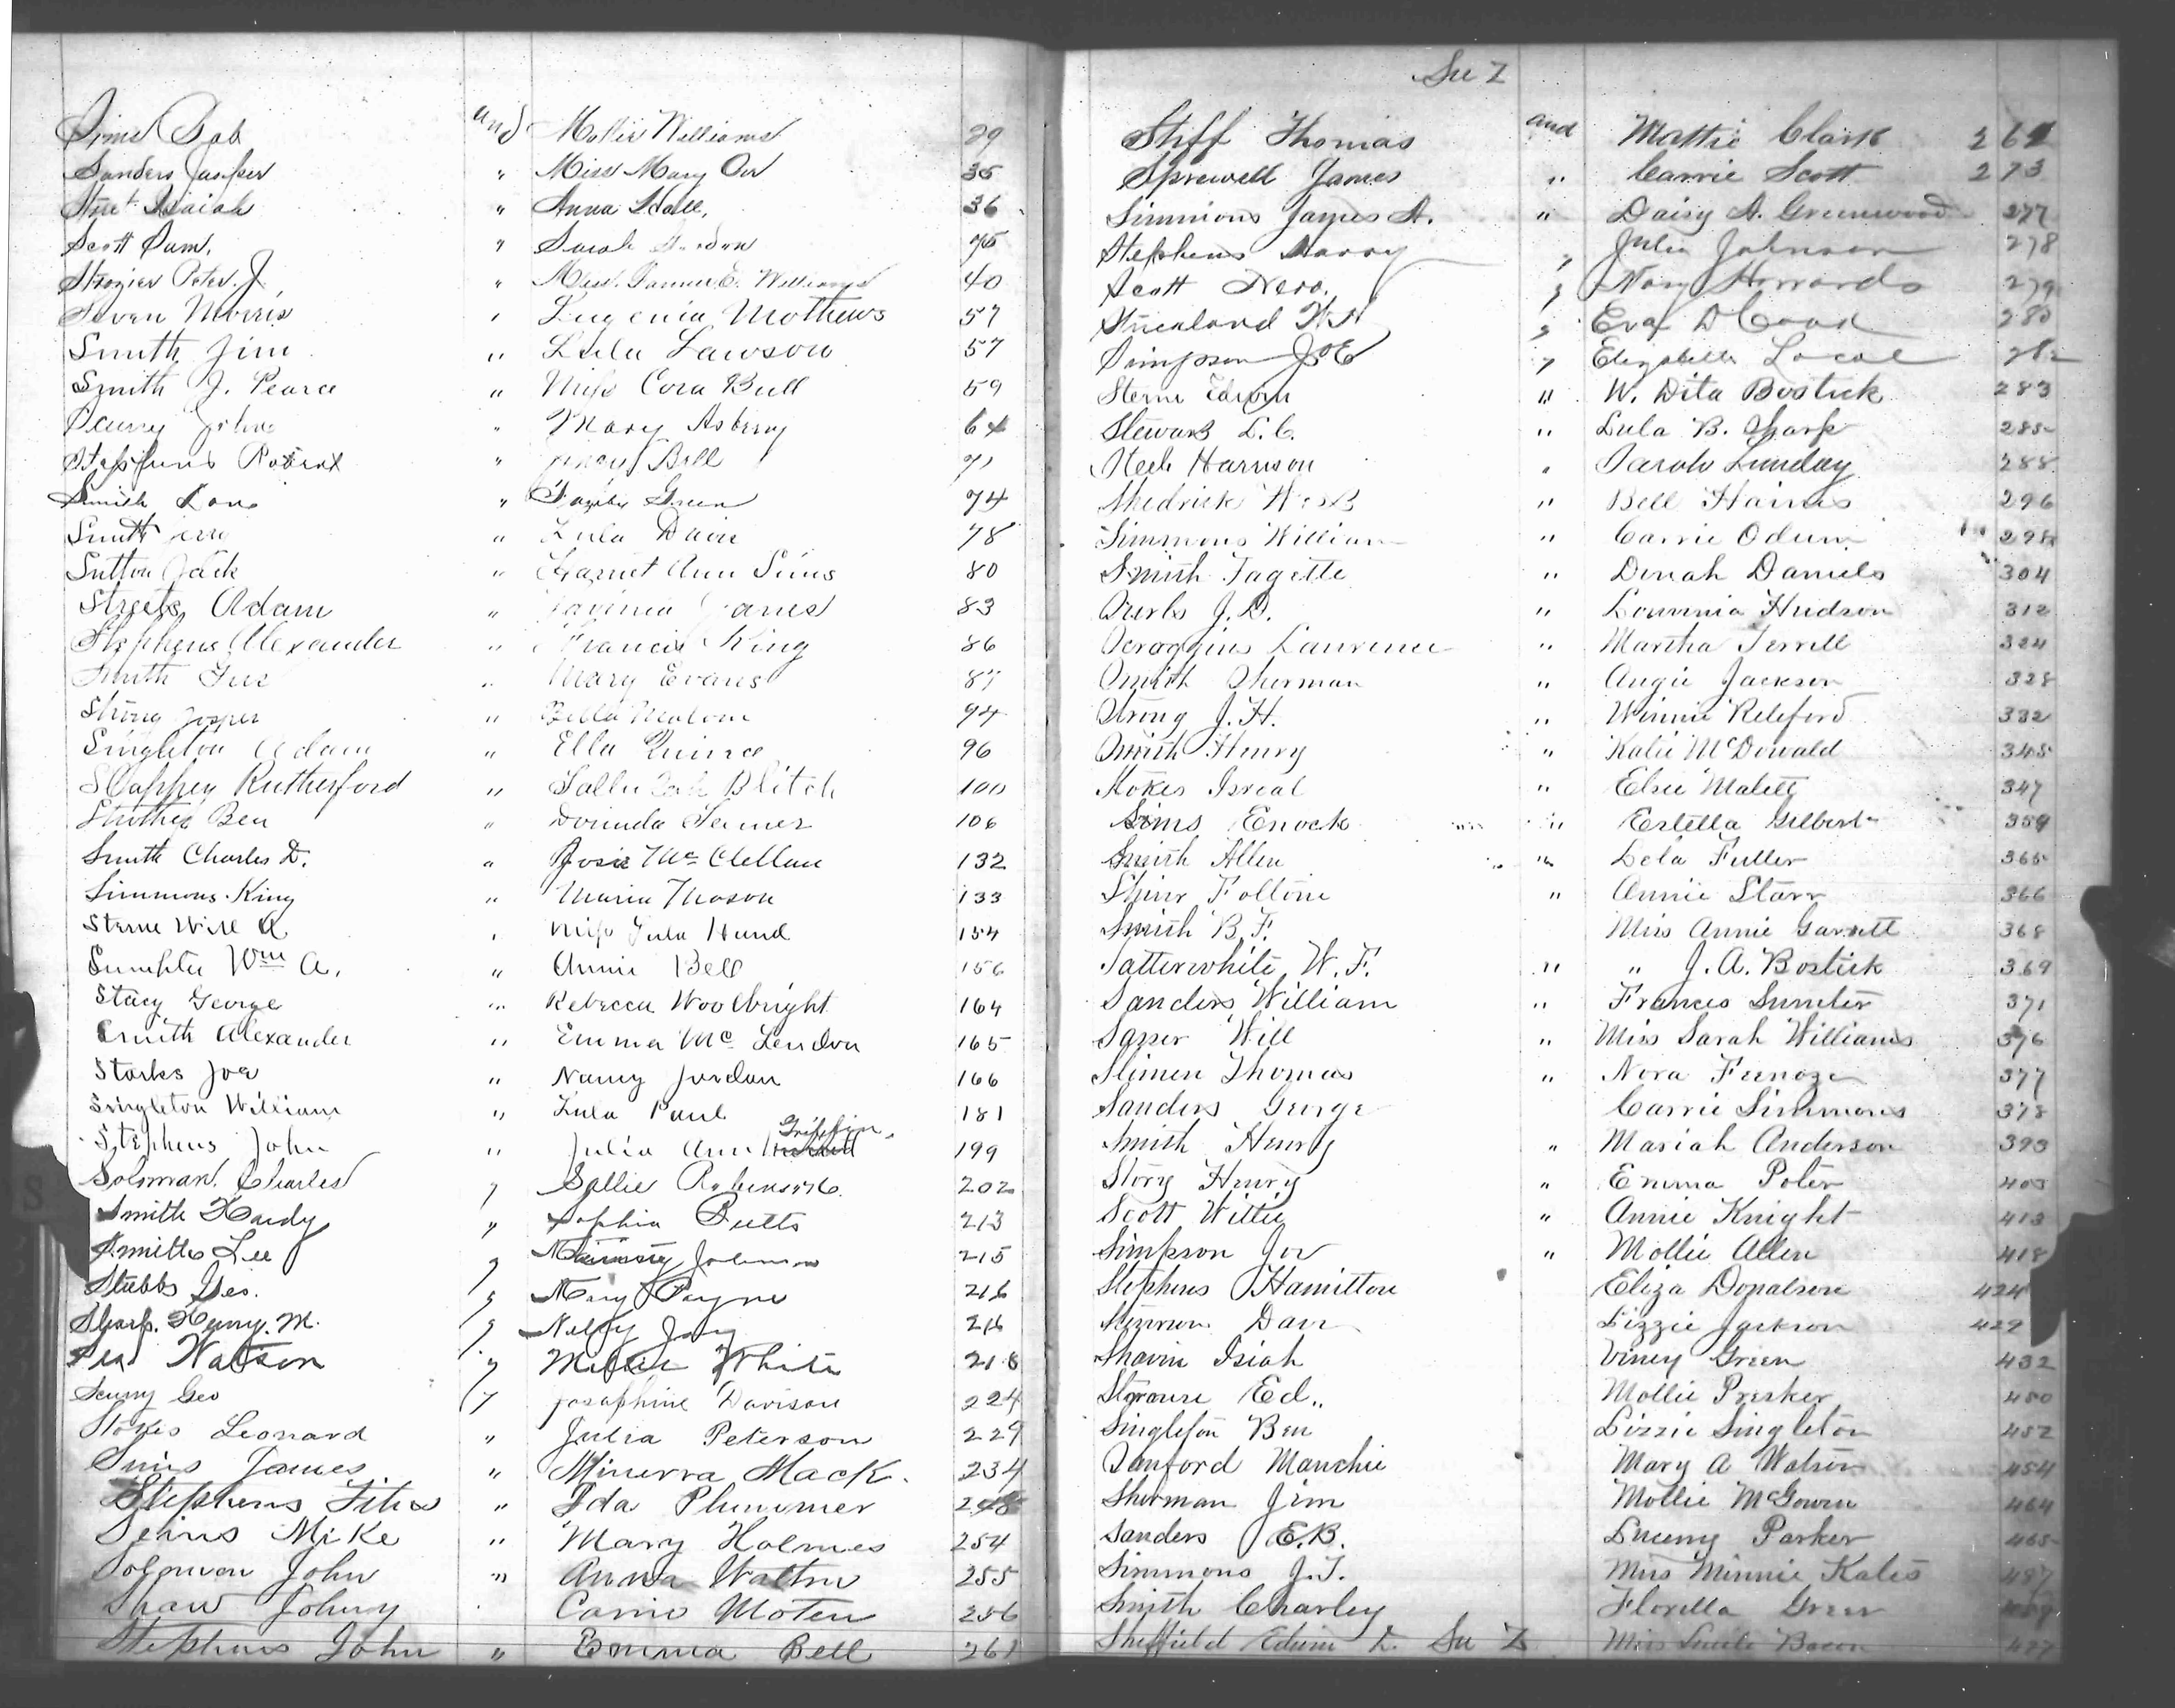 Sims Bob and Mollie Williams 29
Sanders Jasper " Miss Mary Orr 35
Isaiah " Anna Hall 36
Scott Sam. " Sarah
Strozier Peter. J. " Miss. Fannie E. Williams 40
Morris " Eugenia Mathews 57
Smith Jim " Lula Lawson 57
Smith J. Pearce " Miss Cora Bull 59
Scurry John " Mary Asberry 64
Stephens Robert " Bell 71
Smith " Green 74
Smith " Lula Davis 78
Sutton Jack " Harriet Ann Sims 80
Streets Adam " 83
Stephens Alexander " Francis King 86
Smith " Mary Evans 87
Strong Jasper " Bella Malone 94
Singleton Adam " Ella 96
Slappey Rutherford " Sallie Blitch 100
Struther Ben " Dorinda 106
Smith Charles D. " Josie McClellan 132
Simmons King " Maria Mason 133
Sterne Will A " Miss Lula Hund 154
Sumpter Wm A. " Annie Bell 156
Stacy George " Rebecca Woolbright 164
Smith Alexander " Emma McLendon 165
Starks Joe " Nancy Jordan 166
Singleton William " Lula Paul 181
Stephens John " Julia Ann Griffin 199
Soloman Charles " Sallie Robinson 202
Smith Hardy " Sophia Butts 213
Smith Lee " Johnson 215
Stubbs Geo. " Mary Payne 216
Sharp. Henry. M. " Nelly 216
Watson " White 218
Scurry Geo " Josephine Davison 224
Stokes Leonard " Julia Peterson 229
Sims James " Minerva Mack. 234
Stephens Titus " Ida Plummer
Seins Mike " Mary Holmes 254
Solomon John " Anna Walton 255
Shaw Johny " Carrie Moten 256
Stephens John " Emma Bell 261
See Z
Stiff Thomas and Mattie Clark 261
Sprewell James " Carrie Scott 273
Simmions James A. " Daisy A. Greenwood 277
Stephens Harry " Julia Johnson 278
Scott Nero. " Howards 279
Strickland " Eva D Cook 280
Simpson " Elizabeth Local
Sterne Edwin " W. Dita Bostick 283
Steward L. C. " Lula B. Sharp 285
Steele Harrison " Sarah Lunday 288
Shedrick " Bell Haines 296
Simmons William " Carrie Odum 298
Smith Fagette " Dinah Daniels 304
J. D. " Louvinia Hudson 312
Scroggins Laurence " Martha Terrell 324
Smith Sherman " Angie Jackson 328
Strong J. H. " Winnie Releford 332
Smith Henry " Katie McDowald 345
Stokes Isreal " Elsie Malett 347
Sims Enock " Estella Gilbert 359
Smith Allen " Lela Fuller 365
Foltine " Annie Starr 366
Smith B. F. Miss Annie Garrett 368
Satterwhite W. F. " " J. A. Bostick 369
Sanders William " Frances Sumter 371
Sasser Will " Miss Sarah Williams 376
Thomas " Nora 377
Sanders George Carrie Simmons 378
Smith Henry " Mariah Anderson 393
Story Henry " Emma Poter 403
Scott Willie " Annie Knight 413
Simpson Joe " Mollie Allen 418
Stephens Hamilton Eliza Donalson 424
Lizzie Jackson 429
Isiah Viney Green 432
Ed. Mollie 450
Singleton Ben Lizzie Singleton 452
Sanford Manchie Mary A Watson 454
Sherman Jim Mollie McGowen 464
Sanders E. B. Parker 465
Simmons J. T. Miss Minnie Kates 487
Smith Charley Florella Greer
Sheffield Edwin D. See Z Miss Bacon